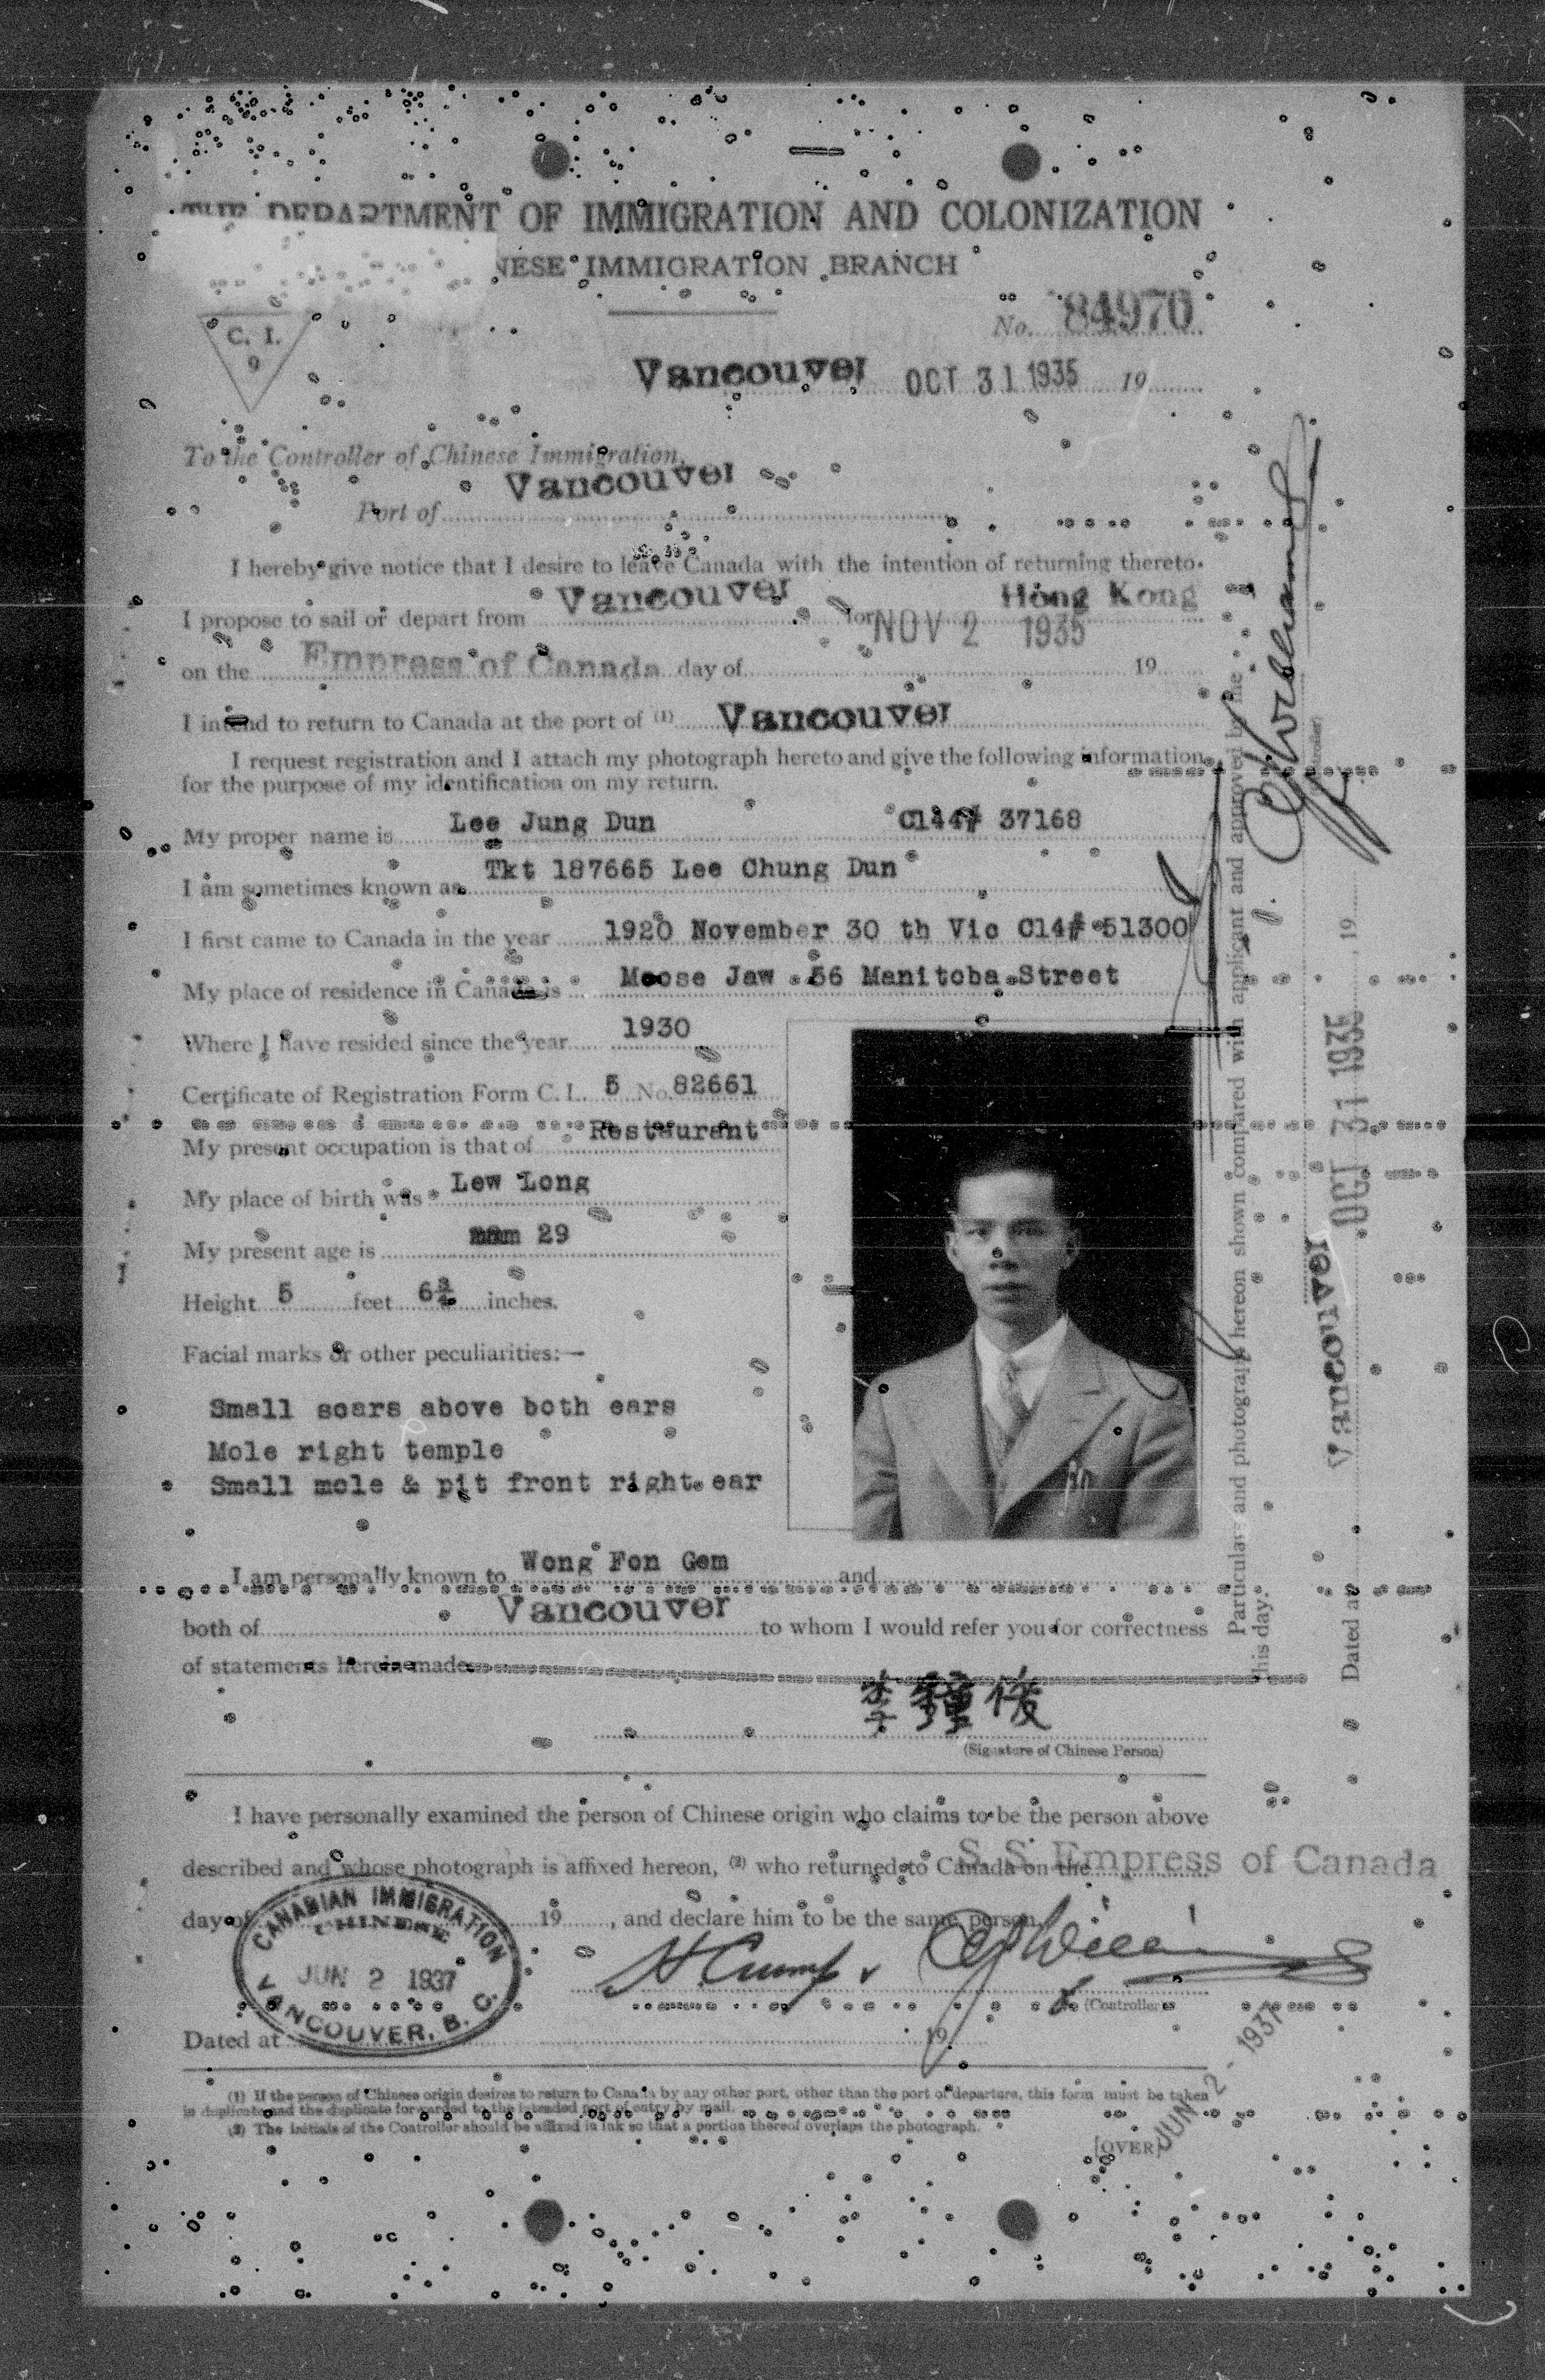 THE DEPARTMENT OF IMMIGRATION AND COLONIZATION
NESE IMMIGRATION BRANCH
C. I.
9
No. 84970
Vancouver OCT 31 1935 19
To the Controller of Chinese Immigration,
Port of Vancouver
I hereby give notice that I desire to leave Canada with the intention of returning thereto.
I propose to sail or depart from Vancouver for Hong Kong
on the Empress of Canada day of NOV 2 1935 19
I intend to return to Canada at the port of (1) Vancouver
I request registration and I attach my photograph hereto and give the following information
for the purpose of my identification on my return.
My proper name is Lee Jung Dun C144# 37168
I am sometimes known as Tkt 187665 Lee Chung Dun
I first came to Canada in the year 1920 November 30 th Vic C14# 51300
My place of residence in Canada is Moose Jaw 56 Manitoba Street
Where I have resided since the year 1930
Certificate of Registration Form C. I. 5 No. 82661
My present occupation is that of Restaurant
My place of birth was Lew Long
My present age is 29
Height 5 feet 6¾ inches.
Facial marks or other peculiarities:—
Small scars above both ears
Mole right temple
Small mole & pit front right ear
I am personally known to Wong Fon Gem and
both of Vancouver to whom I would refer you for correctness
of statements herein made
李鍾俊
(Signature of Chinese Person)
I have personally examined the person of Chinese origin who claims to be the person above
described and whose photograph is affixed hereon, (2) who returned to Canada on the S. S. Empress of Canada
day of 19 , and declare him to be the same person.
CANADIAN IMMIGRATION
CHINESE
JUN 2 1937
VANCOUVER, B. C.
H. Crump
(Controller)
Dated at 19
(1) If the person of Chinese origin desires to return to Canada by any other port, other than the port of departure, this form must be taken
in duplicate and the duplicate forwarded to the intended port of entry by mail.
(2) The initials of the Controller should be affixed in ink so that a portion thereof overlaps the photograph.
[OVER]
JUN 2 - 1937
Particulars and photograph hereon shown compared with applicant and approved by me
this day.
Dated at Vancouver OCT 31 1935 19